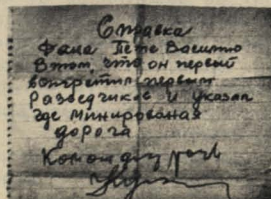 Справка
Дана Пепе Василию
В том, что он первый
встретил первым
Разведчиков и указал
где Минирована
дорога
Командир